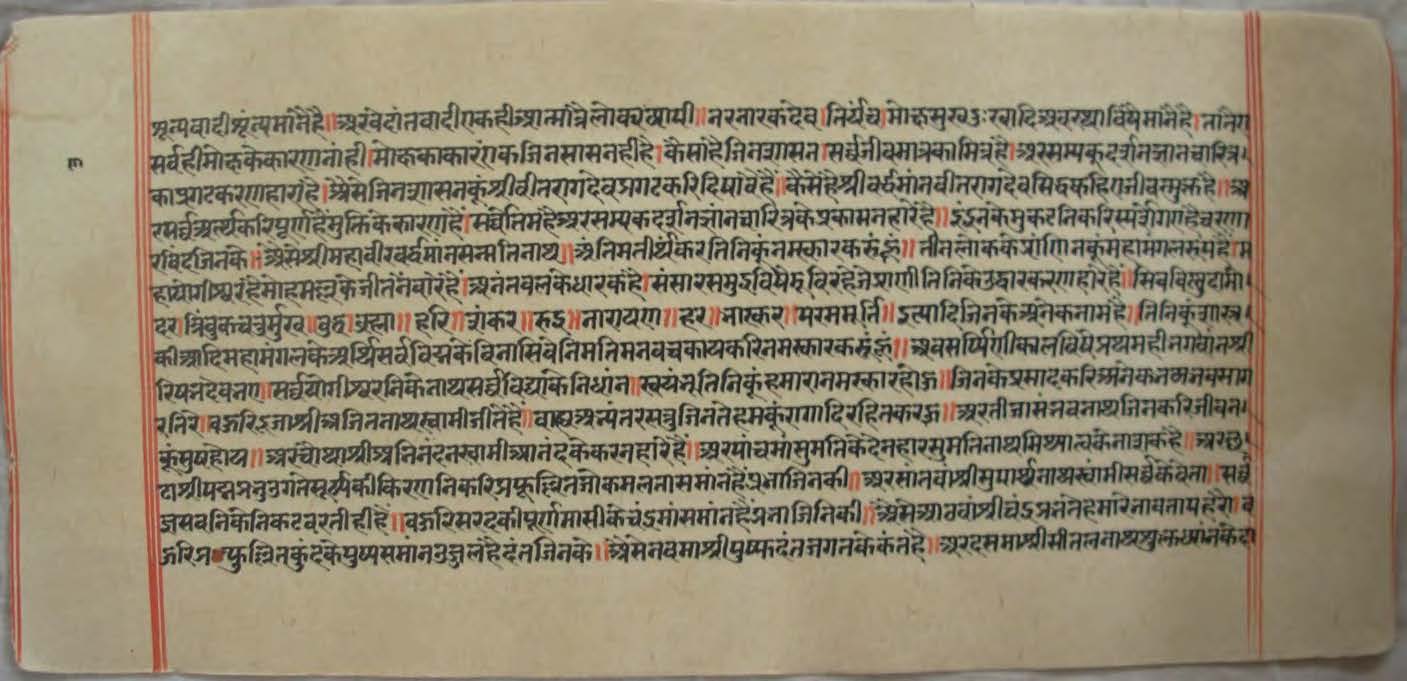 ३
शून्यवादीशून्यमांनैहै॥अरवेदांतवादीएकहीआत्मांत्रैलोक्यव्यापी॥नरनारकदेव।तिर्यंच।मोक्षसुखदुःखादिअवस्थाविषैमांनैहै।
सर्वहीमोक्षकेकारणनांही।मोक्षकाकारणएकजिनसासनहीहै।कैसाहैजिनशासन।सर्वजीवमात्रकामित्रहै।अरसम्यकदर्शनज्ञानचारित्र।
काप्रगटकरणहाराहै।अैसेजिनशासनकूंश्रीवीतरागदेवप्रगटकरिदिषांवैहैं॥कैसेहैश्रीवर्द्धमांनवीतरागदेवसिद्धकहिएजीवन्मुक्तहै॥अ
रसर्वअर्त्थकरिपूर्णहैमुक्तिकेकारणहै।अरसम्यकदर्शनज्ञांनचारित्रकेप्रकासनहारेहै॥इंद्रनकेमुकटनिकरिस्पर्शेगएहैचरणा
रविंदजिनके॥अैसेश्रीमहावीरवर्द्धमांनसन्मतिनाथ॥अंतिमतीर्थंकरतिनिकूंनमस्कारकरूंहूं॥तीनलोककेप्राणिनकूंमहामंगलरूपहै।म
हायोगीश्वरहैमोहमल्लकेजीतनेंवारेहै।अनंतबलकेधारकहै।संसारसमुद्रविषैडूबिरहेजेप्राणीतिनिकेउद्धारकरणहारेहै॥सिवविस्नुदामो।
दर।त्र्यंबुकचतुर्मुख॥बुद्ध।ब्रह्मा॥हरि।शंकर॥रुद्र॥नारायण॥हर॥भास्कर।परममूर्त्ति॥इत्यादिजिनकेअनेकनामहै॥तिनिकूंशास्त्र।
कीआदिमहामंगलकेअर्थिसर्वविघ्नकेविनासिवेनिमतिमनवचकायकरिनमस्कारकरूंहूं॥अवसर्प्पिणीकालविषैप्रथमहीभगवांनश्री
रिषभदेवभए॥सर्वयोगीश्वरनिकेनाथसर्वविद्याकेनिधांन॥स्वयंभूतिनिकूंहमारानमस्कारहोऊ॥जिनकेप्रसादकरिअनेकभव्यभवसाग
रतिरे।बऊरिदूजाश्रीअजितनाथस्वामीजीतेहैं॥वाह्यअभ्यंतरसत्रुजिनतेहमकूंरागादिरहितकरऊ॥अरतीजासंभवनाथजिनकरिजीवन।
कूंसुषहोय॥अरचौथाश्रीअभिनंदनस्वामीआनंदकेकरनहारेहैं॥अरपांचमांसुमतिकेदेनहारसुमतिनाथमिथ्यात्वकेनाशकहै॥अरछ।
टाश्रीपद्मप्रभुउगतेसूर्य्यकीकिरणनिकरिप्रफूल्लितजोकमलतासमांनहैप्रभाजिनकी॥अरसांतवांश्रीसुपार्श्वनाथस्वांमीसर्वकेवेता॥सर्व
ज्ञसवनिकेनिकटवरतीहीहै॥बऊरिसरदकीपूर्णमासीकेचंद्रमांसमांनहैप्रभाजिनिकी॥अैसेआठवांश्रीचंद्रप्रभतेहमारेभवतापहरो।ब
ऊरिप्रफुल्लितकुंदकेपुष्पसमांनउज्जलहैदंतजिनके॥अैसेनवमाश्रीपुष्फदंतजगतकेकंतहै॥अरदसमाश्रीसीतलनाथशुक्लध्यांनकेदा